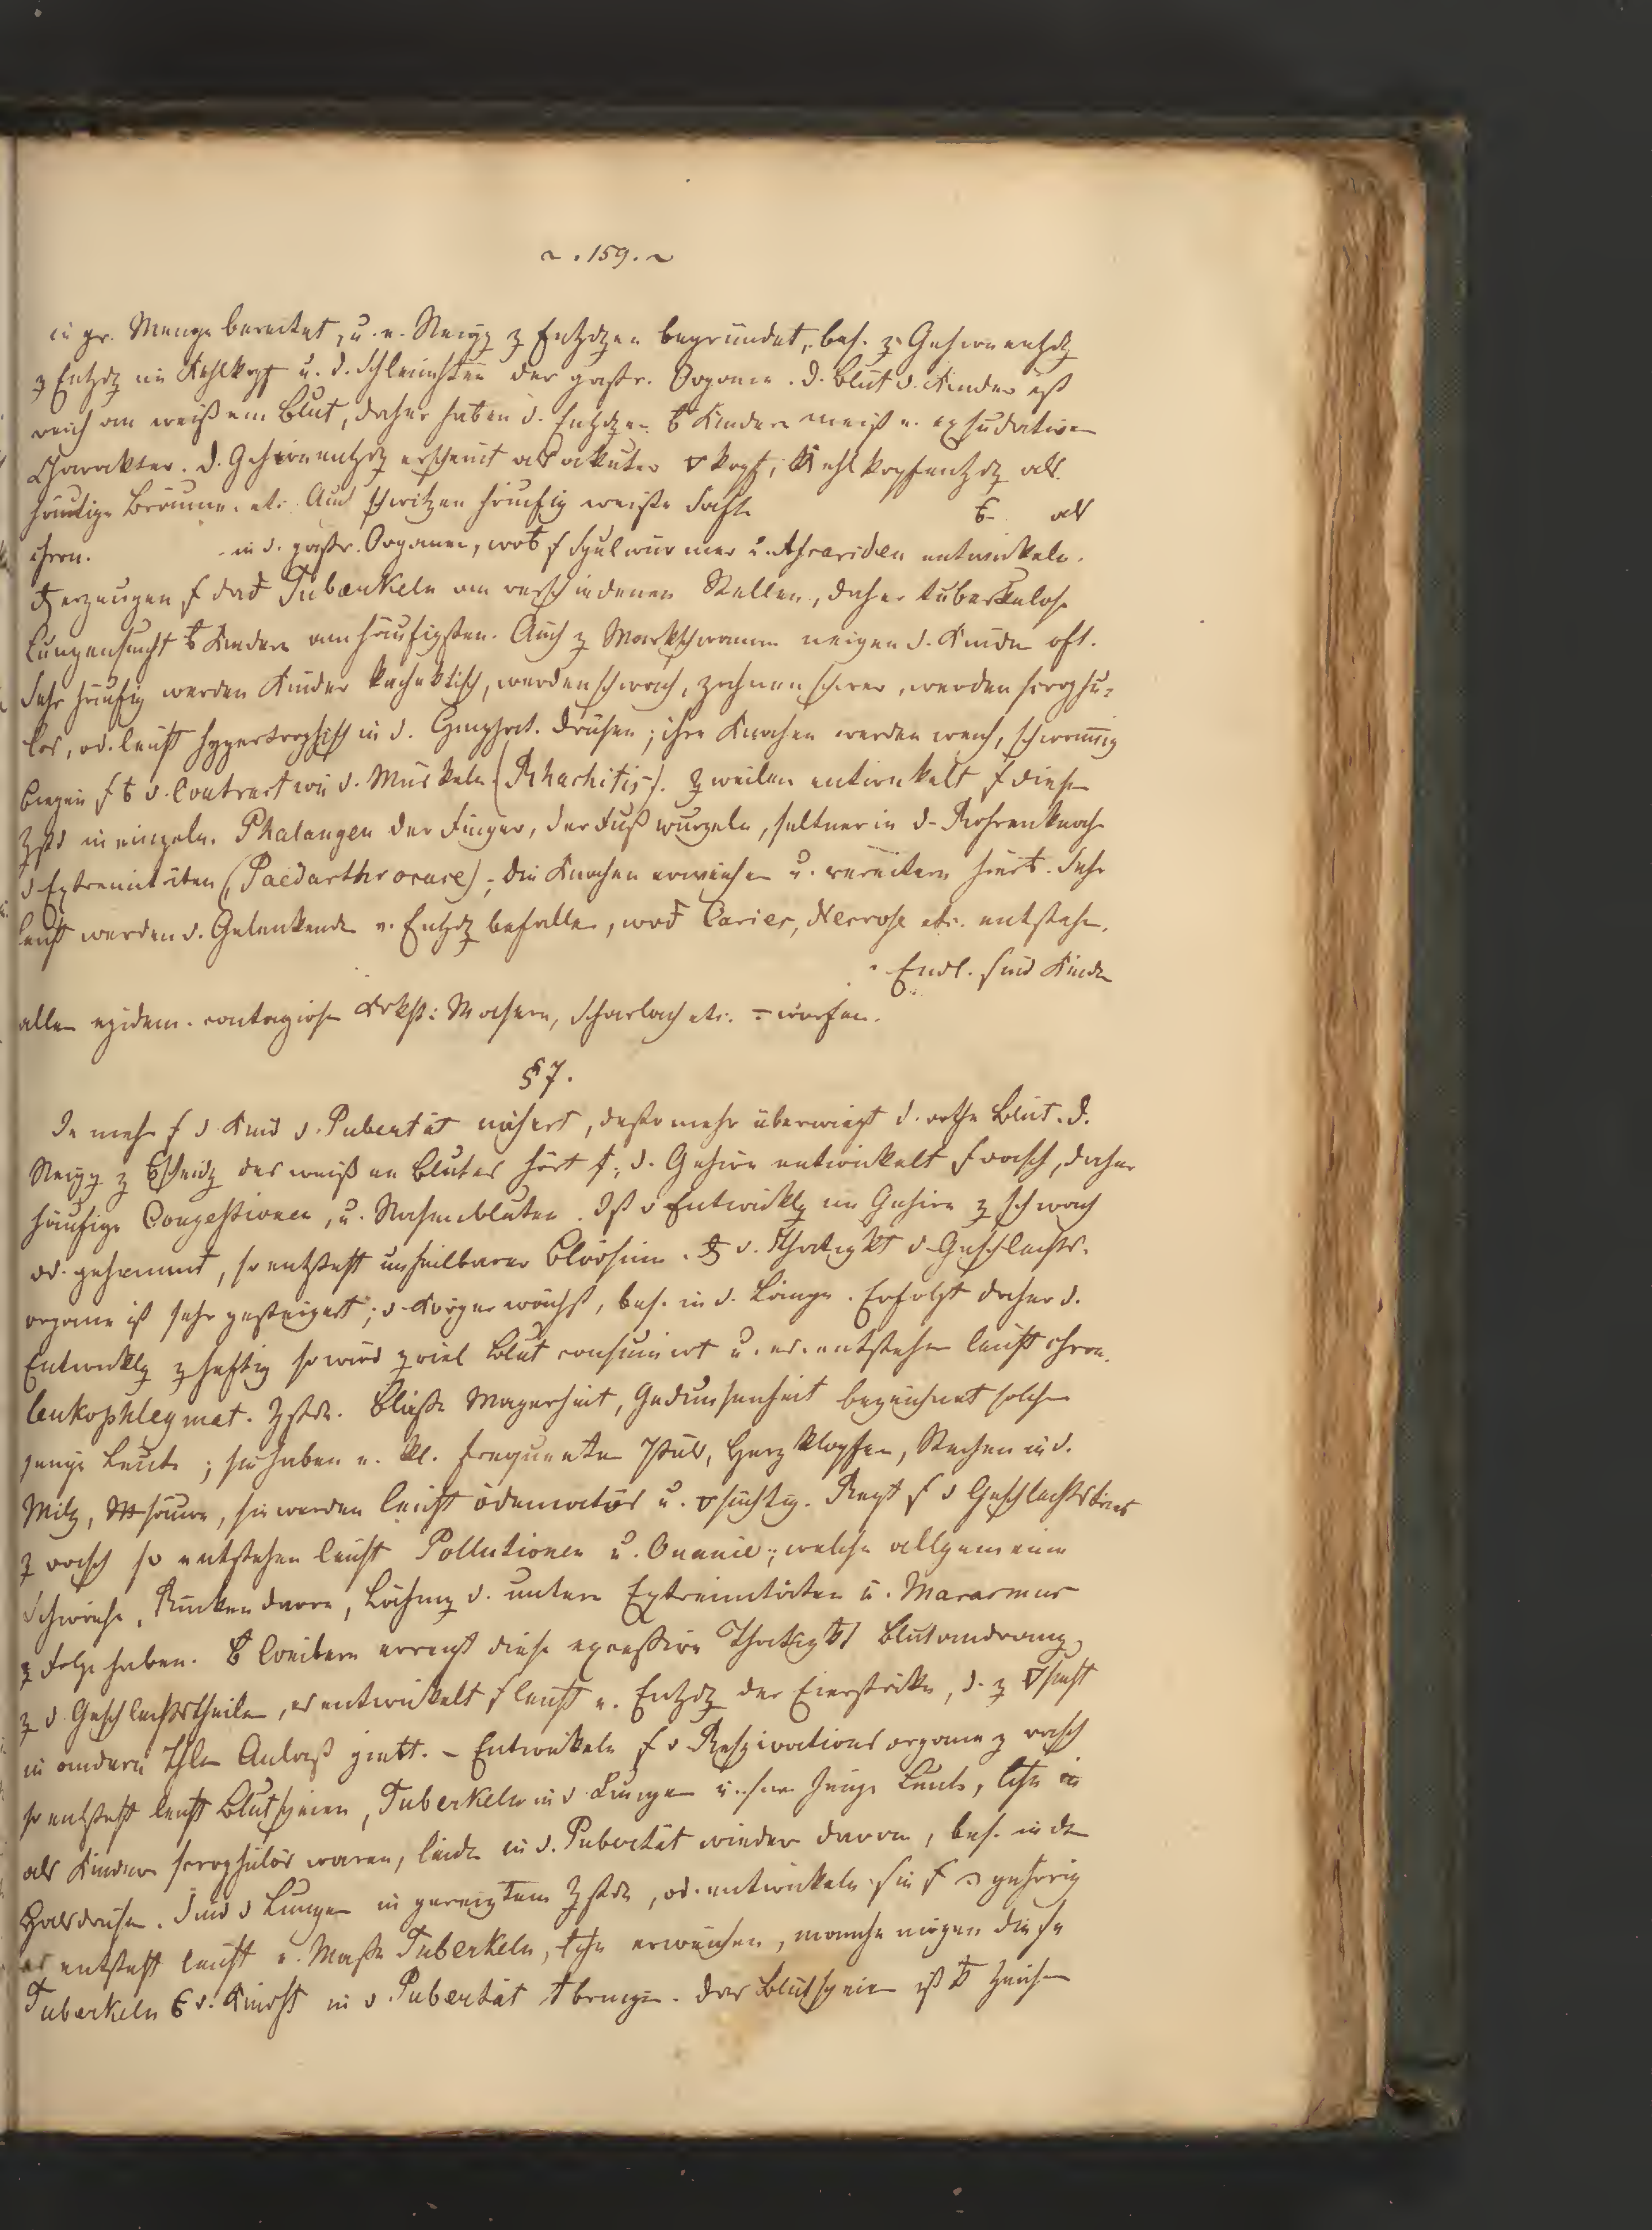 ~ . 159. ~
in gr. Menge bereitet, u. e. Neigg z Entzdgen begründet, bes. z Gehirnentzdg
z Entzdg im Kehlkopf u. d. Schleimhäuten der gastr. Organe. D. Blut d. Kinder ist
reich an weißem Blut, daher haben d. Entzdgen b Kindern meist e. exsudativen
Charakter. D. Gehirnentzdg erscheint als akuter kopf, Kehlkopfentzdg als
häutige Bräune etc. Auch schwitzen häufig weiße Säfte als
chron. in d. gastr. Organen, wob s Spulwürmer u. Ascariden entwickeln.
erzeugen s dad Tuberkeln an verschiedenen Stellen, daher tuberkulose
Lungensucht b Kindern am häufigsten. Auch z Markschwamm neigen d. Kinder oft.
Sehr häufig werden Kinder kachektisch, werden schwach, zahnen schwer, werden scrophu-
los, od. leicht hypertrophisch in d. Lymphat. Drüsen; ihre Knochen werden weich, schwammig
biegen s b d. Contraction d. Muskeln (Rhachitis). zweilen entwickelt s dieser
Zstd in einzeln. Phalangen der Finger, der Fußwurzeln, seltner in d. Rohrenknoch
d Extremitäten (Paedarthrocace); die Knochen erweichen u. vereitern hierb. Sehr
leicht werden d. Gelenkende v. Entzdg befallen, wod Caries, Necrose etc. entstehe.
Endl. sind Kinder
allen epidem. contagiosen Krkht: Masern, Scharlach etc. = worfen.
§ 7.
Je mehr s d Kind d. Pubertät nähert, desto mehr überwiegt d. rothe Blut. D.
Neigg z des weißen Blutes hört; d. Gehirn entwickelt s rasch, daher
häufige Congestionen, u. Nasenbluten. Ist d Entwicklg im Gehirn z schwach
od. gehemmt, so entsteht unheilbarer Blödsinn. d. Thätigkt d Geschlechts-
organe ist sehr gesteigert; d Körper wächst, bes. in d. Länge. Erfolgt daher d.
Entwicklg z heftig so wird z viel Blut consumirt u. es entstehen leicht chron.
leukophlegmat. Zstde. Bleiche Magerheit, Gedunsenheit bezeichnet solche
junge Leute; sie haben e. kl. frequenten Puls, Herzklopfen, Stechen in d.
Milz, säure, sie werden leicht ödematös u. süchtig. Regt s d Geschlechtstrieb
z rasch so entstehen leicht Pollutionen u. Onanie; welche allgemeine
Schwäche, Rückendarre, Lähmg d. untern Extremitäten u. Marasmus
z Folge haben. B Weibern erregt diese excessive Thätigkt Blutandrang
z d Geschlechtstheilen, es entwickelt s leicht e. Entzdg der Eierstöcke, d. z sucht
in andern Thln Anlaß giebt. – Entwickeln s d Respirationsorgane z rasch
so entsteht leicht Blutspeien, Tuberkeln in d Lungen junge Leute,
als Kinder scrophulös waren, leiden in d. Pubertät wieder daran, bes. in den
Halsdrüsen. Sind d Lungen in gereiztem Zstde, od. entwickeln sie s gehörig
es entsteht leicht e. Masse Tuberkeln, erweichen, manche mögen diese
Tuberkeln d. Kindht in d Pubertät bringen. Das Blutspeien ist Zeichen